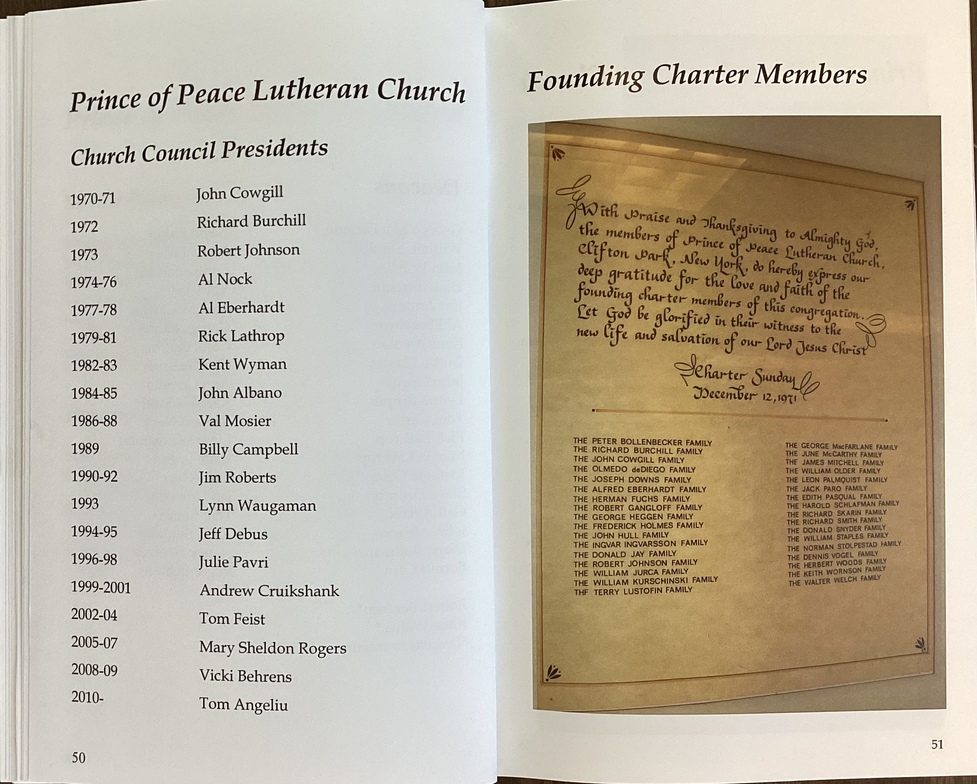 Prince of Peace Lutheran Church
Church Council Presidents
1970-71 John Cowgill
1972 Richard Burchill
1973 Robert Johnson
1974-76 Al Nock
1977-78 Al Eberhardt
1979-81 Rick Lathrop
1982-83 Kent Wyman
1984-85 John Albano
1986-88 Val Mosier
1989 Billy Campbell
1990-92 Jim Roberts
1993 Lynn Waugaman
1994-95 Jeff Debus
1996-98 Julie Pavri
1999-2001 Andrew Cruikshank
2002-04 Tom Feist
2005-07 Mary Sheldon Rogers
2008-09 Vicki Behrens
2010- Tom Angeliu
50
Founding Charter Members
With Praise and Thanksgiving to Almighty God,
the members of Prince of Peace Lutheran Church,
Clifton Park, New York, do hereby express our
deep gratitude for the love and faith of the
founding charter members of this congregation.
Let God be glorified in their witness to the
new life and salvation of our Lord Jesus Christ
Charter Sunday
December 12, 1971
THE PETER BOLLENBECKER FAMILY
THE RICHARD BURCHILL FAMILY
THE JOHN COWGILL FAMILY
THE OLMEDO deDIEGO FAMILY
THE JOSEPH DOWNS FAMILY
THE ALFRED EBERHARDT FAMILY
THE HERMAN FUCHS FAMILY
THE ROBERT GANGLOFF FAMILY
THE GEORGE HEGGEN FAMILY
THE FREDERICK HOLMES FAMILY
THE JOHN HULL FAMILY
THE INGVAR INGVARSSON FAMILY
THE DONALD JAY FAMILY
THE ROBERT JOHNSON FAMILY
THE WILLIAM JURCA FAMILY
THE WILLIAM KURSCHINSKI FAMILY
THE TERRY LUSTOFIN FAMILY
THE GEORGE MacFARLANE FAMILY
THE JUNE McCARTHY FAMILY
THE JAMES MITCHELL FAMILY
THE WILLIAM OLDER FAMILY
THE LEON PALMQUIST FAMILY
THE JACK PARO FAMILY
THE EDITH PASQUAL FAMILY
THE HAROLD SCHLAFMAN FAMILY
THE RICHARD SKARIN FAMILY
THE RICHARD SMITH FAMILY
THE DONALD SNYDER FAMILY
THE WILLIAM STAPLES FAMILY
THE NORMAN STOLPESTAD FAMILY
THE DENNIS VOGEL FAMILY
THE HERBERT WOODS FAMILY
THE KEITH WORNSON FAMILY
THE WALTER WELCH FAMILY
51